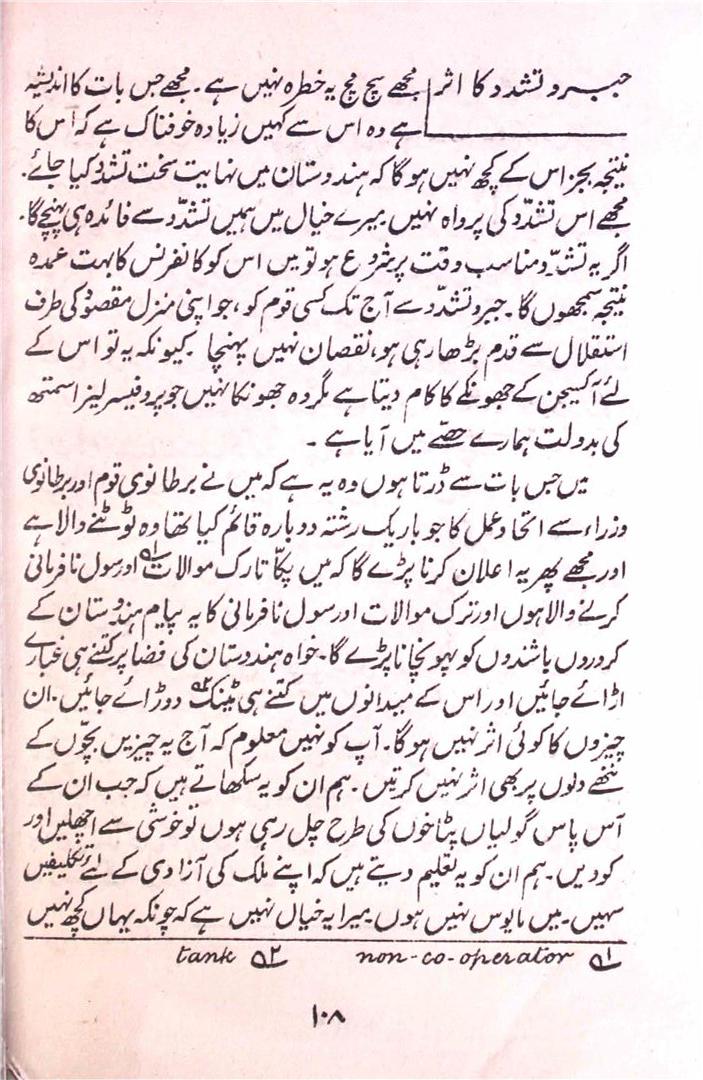 جبر و تشدد کا اثر مجھے سچ مچ یہ خطرہ نہیں ہے۔ مجھے جس بات کا اندیشہ
ہے وہ اس سے کہیں زیادہ خوفناک ہے کہ اس کا
نتیجہ بجز اس کے کچھ نہیں ہو گا کہ ہندوستان میں نہایت سخت تشدد کیا جائے۔
مجھے اس تشدّد کی پرواہ نہیں میرے خیال میں ہمیں تشدّد سے فائدہ ہی پہنچے گا۔
اگر یہ تشدّد مناسب وقت پر شروع ہو تو میں اس کو کانفرنس کا بہت عمدہ
نتیجہ سمجھوں گا۔ جبر و تشدّد سے آج تک کسی قوم کو، جو اپنی منزل مقصود کی طرف
استقلال سے قدم بڑھا رہی ہو، نقصان نہیں پہنچا۔ کیونکہ یہ تو اس کے
لئے آکسیجن کے جھونکے کا کام دیتا ہے مگر وہ جھونکا نہیں جو پروفیسر لیز اسمتھ
کی بدولت ہمارے حصّے میں آیا ہے۔
میں جس بات سے ڈرتا ہوں وہ یہ ہے کہ میں نے برطانوی قوم اور برطانوی
وزراء سے اتحاد عمل کا جو باریک رشتہ دوبارہ قائم کیا تھا وہ ٹوٹنے والا ہے
اور مجھے پھر یہ اعلان کرنا پڑے گا کہ میں پکّا تارک موالات ۱؎ اور سول نافرمانی
کرنے والا ہوں اور ترک موالات اور سول نافرمانی کا یہ پیام ہندوستان کے
کروروں باشندوں کو پہونچانا پڑے گا۔ خواہ ہندوستان کی فضا پر کتنے ہی غبارے
اڑائے جائیں اور اس کے میدانوں میں کتنے ہی ٹینک ۲؎ دوڑائے جائیں۔ ان
چیزوں کا کوئی اثر نہیں ہو گا۔ آپ کو نہیں معلوم کہ آج یہ چیزیں بچّوں کے
ننھے دلوں پر بھی اثر نہیں کرتیں۔ ہم ان کو یہ سکھاتے ہیں کہ جب ان کے
آس پاس گولیاں پٹاخوں کی طرح چل رہی ہوں تو خوشی سے اچھلیں اور
کودیں۔ ہم ان کو یہ تعلیم دیتے ہیں کہ اپنے ملک کی آزادی کے لئے تکلیفیں
سہیں۔ میں مایوس نہیں ہوں میرا یہ خیال نہیں ہے کہ چونکہ یہاں کچھ نہیں
۱؎ non-co-operator ۲؎ tank
۱۰۸